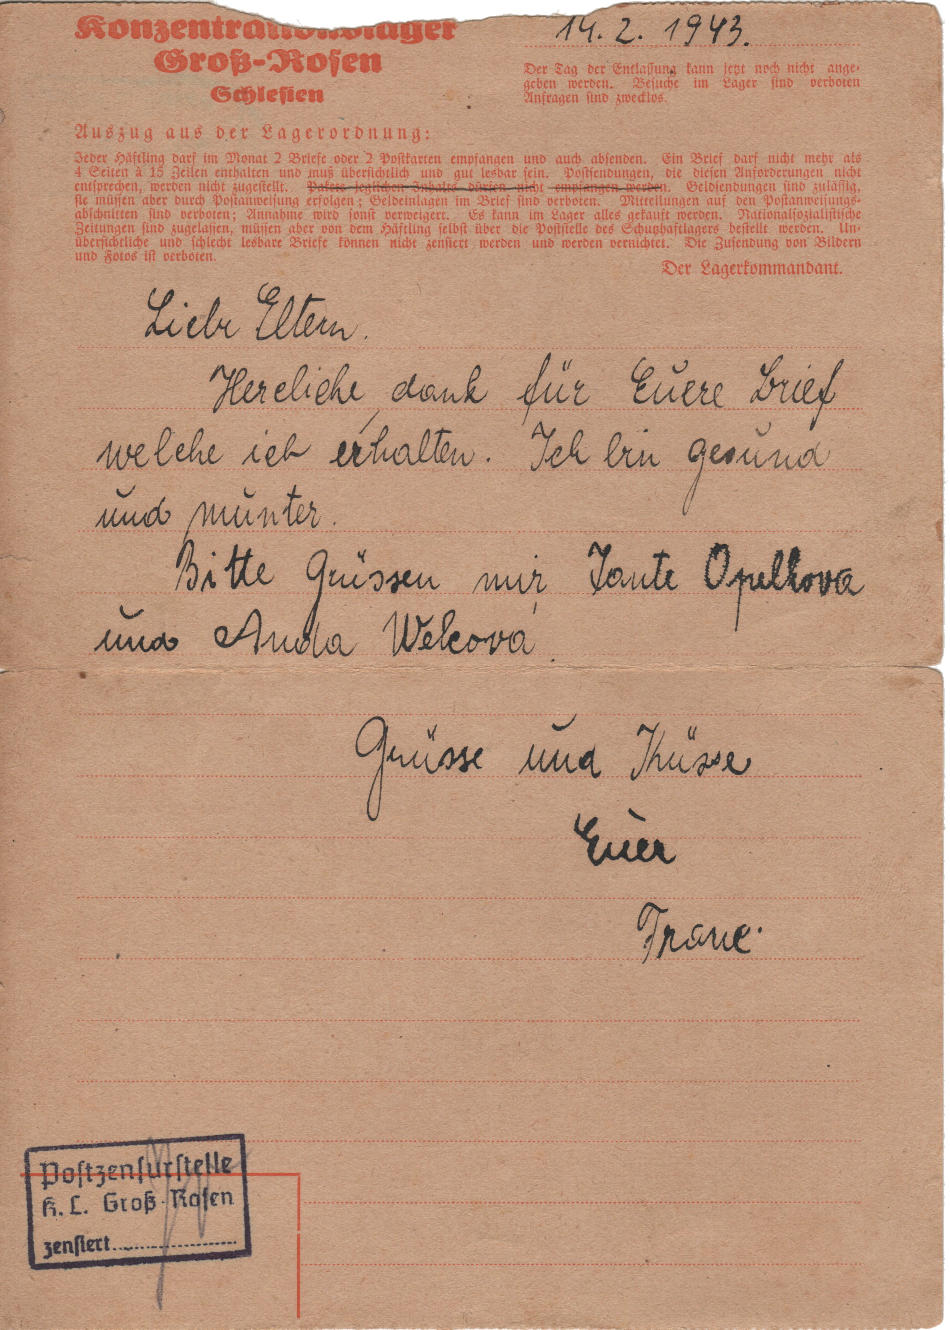 Konzentrationslager
Groß-Rosen
Schlesien
14. 2. 1943.
Der Tag der Entlassung kann jetzt noch nicht ange-
geben werden. Besuche im Lager sind verboten
Anfragen sind zwecklos.
Auszug aus der Lagerordnung:
Jeder Häftling darf im Monat 2 Briefe oder 2 Postkarten empfangen und auch absenden. Ein Brief darf nicht mehr als
4 Seiten à 15 Zeilen enthalten und muß übersichtlich und gut lesbar sein. Postsendungen, die diesen Anforderungen nicht
entsprechen, werden nicht zugestellt. Pakete jeglichen Inhalts dürfen nicht empfangen werden. Geldsendungen sind zulässig,
sie müssen aber durch Postanweisung erfolgen; Geldeinlagen im Brief sind verboten. Mitteilungen auf den Postanweisungs-
abschnitten sind verboten; Annahme wird sonst verweigert. Es kann im Lager alles gekauft werden. Nationalsozialistische
Zeitungen sind zugelassen, müssen aber von dem Häftling selbst über die Poststelle des Schutzhaftlagers bestellt werden. Un-
übersichtliche und schlecht lesbare Briefe können nicht zensiert werden und werden vernichtet. Die Zusendung von Bildern
und Fotos ist verboten.
Der Lagerkommandant.
Liebe Eltern.
Hercliche dank für Euere Brief
welche ich erhalten. Ich bin gesund
und munter.
Bitte Grüssen mir Tante Opelkova
und Anda Welcová.
Grüsse und Küsse
Euer
Franc.
Postzensurstelle
K. L. Groß-Rosen
zensiert..............